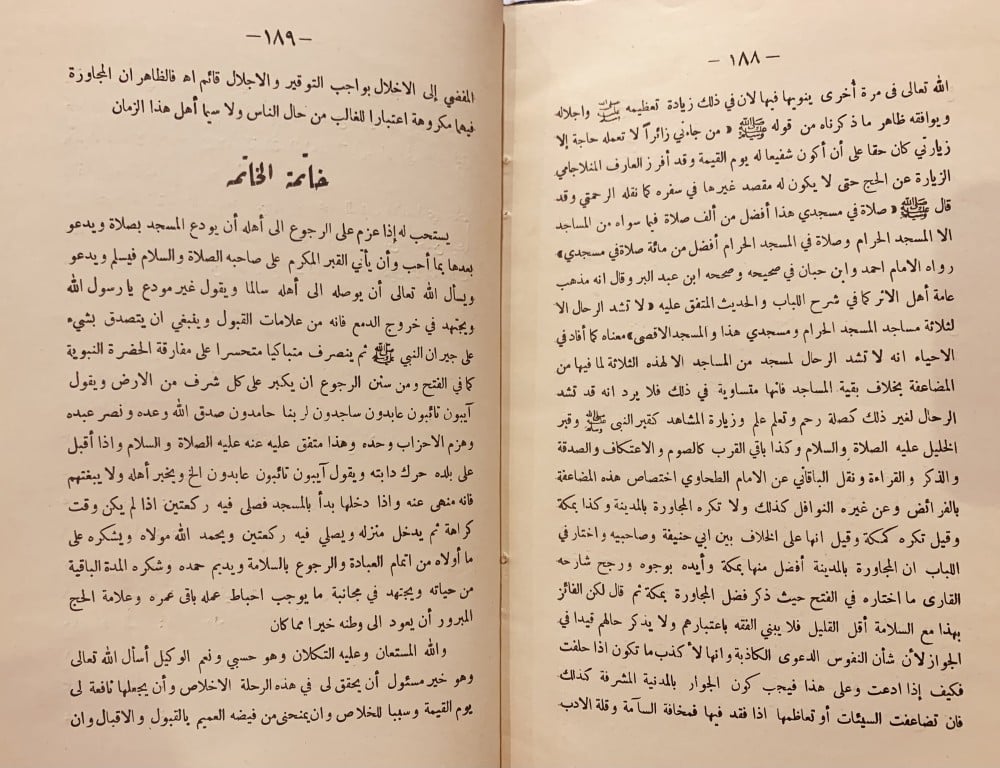 — ١٨٨ —
الله تعالى فى مرة أخرى ينويها فيها لان في ذلك زيادة تعظيمه ﷺ واجلاله
ويوافقه ظاهر ما ذكرناه من قوله ﷺ « من جاءني زائراً لا تعمله حاجة إلا
زيارتي كان حقا على أن أكون شفيعا له يوم القيمة وقد أفرز العارف المنلاجامي
الزيارة عن الحج حتى لا يكون له مقصد غيرها في سفره كما نقله الرحمتي وقد
قال ﷺ « صلاة في مسجدي هذا أفضل من ألف صلاة فيما سواه من المساجد
الا المسجد الحرام وصلاة في المسجد الحرام أفضل من مائة صلاة في مسجدي »
رواه الامام احمد وابن حبان في صحيحه وصححه ابن عبد البر وقال انه مذهب
عامة أهل الاثر كما في شرح اللباب والحديث المتفق عليه « لا تشد الرحال الا
لثلاثة مساجد المسجد الحرام ومسجدي هذا والمسجد الاقصى » معناه كما أفاد في
الاحياء انه لا تشد الرحال لمسجد من المساجد الا لهذه الثلاثة لما فيها من
المضاعفة بخلاف بقية المساجد فانها متساوية في ذلك فلا يرد انه قد تشد
الرحال لغير ذلك كصلة رحم وتعلم علم وزيارة المشاهد كقبر النبي ﷺ وقبر
الخليل عليه الصلاة والسلام وكذا باقي القرب كالصوم والاعتكاف والصدقة
والذكر والقراءة ونقل الباقاني عن الامام الطحاوي اختصاص هذه المضاعفة
بالفرائض وعن غيره النوافل كذلك ولا تكره المجاورة بالمدينة وكذا بمكة
وقيل تكره كمكة وقيل انها على الخلاف بين ابي حنيفة وصاحبيه واختار في
اللباب ان المجاورة بالمدينة أفضل منها بمكة وأيده بوجوه ورجح شارحه
القارى ما اختاره في الفتح حيث ذكر فضل المجاورة بمكة ثم قال لكن الفائز
بهذا مع السلامة أقل القليل فلا يبني الفقه باعتبارهم ولا يذكر حالهم قيدا في
الجواز لأن شأن النفوس الدعوى الكاذبة وانها لأكذب ما تكون اذا حلفت
فكيف إذا ادعت وعلى هذا فيجب كون الجوار بالمدنية المشرفة كذلك
فان تضاعفت السيئات أو تعاظمها اذا فقد فيها فمخافة السآمة وقلة الادب
— ١٨٩ —
المفضي إلى الاخلال بواجب التوقير والاجلال قائم اه فالظاهر ان المجاورة
فيهما مكروهة اعتبارا للغالب من حال الناس ولا سيما أهل هذا الزمان
خاتمة الخاتمه
يستحب له إذا عزم على الرجوع الى أهله أن يودع المسجد بصلاة ويدعو
بعدها بما أحب وأن يأتي القبر المكرم على صاحبه الصلاة والسلام فيسلم ويدعو
ويسأل الله تعالى أن يوصله الى أهله سالما ويقول غير مودع يا رسول الله
ويجتهد في خروج الدمع فانه من علامات القبول وينبغي ان يتصدق بشيء
على جيران النبي ﷺ ثم ينصرف متباكيا متحسرا على مفارقة الحضرة النبوية
كما في الفتح ومن سنن الرجوع ان يكبر على كل شرف من الارض ويقول
آيبون تائبون عابدون ساجدون لربنا حامدون صدق الله وعده ونصر عبده
وهزم الاحزاب وحده وهذا متفق عليه عنه عليه الصلاة والسلام واذا أقبل
على بلده حرك دابته ويقول آيبون تائبون عابدون الخ ويخبر أهله ولا يبغتهم
فانه منهى عنه واذا دخلها بدأ بالمسجد فصلى فيه ركعتين اذا لم يكن وقت
كراهة ثم يدخل منزله ويصلي فيه ركعتين ويحمد الله مولاه ويشكره على
ما أولاه من اتمام العبادة والرجوع بالسلامة ويديم حمده وشكره المدة الباقية
من حياته ويجتهد في مجانبة ما يوجب احباط عمله باقى عمره وعلامة الحج
المبرور أن يعود الى وطنه خيرا مما كان
والله المستعان وعليه التكلان وهو حسبي ونعم الوكيل أسأل الله تعالى
وهو خير مسئول أن يحقق لى في هذه الرحلة الاخلاص وأن يجعلها نافعة لى
يوم القيمة وسببا للخلاص وان يمنحنى من فيضه العميم بالقبول والاقبال وان